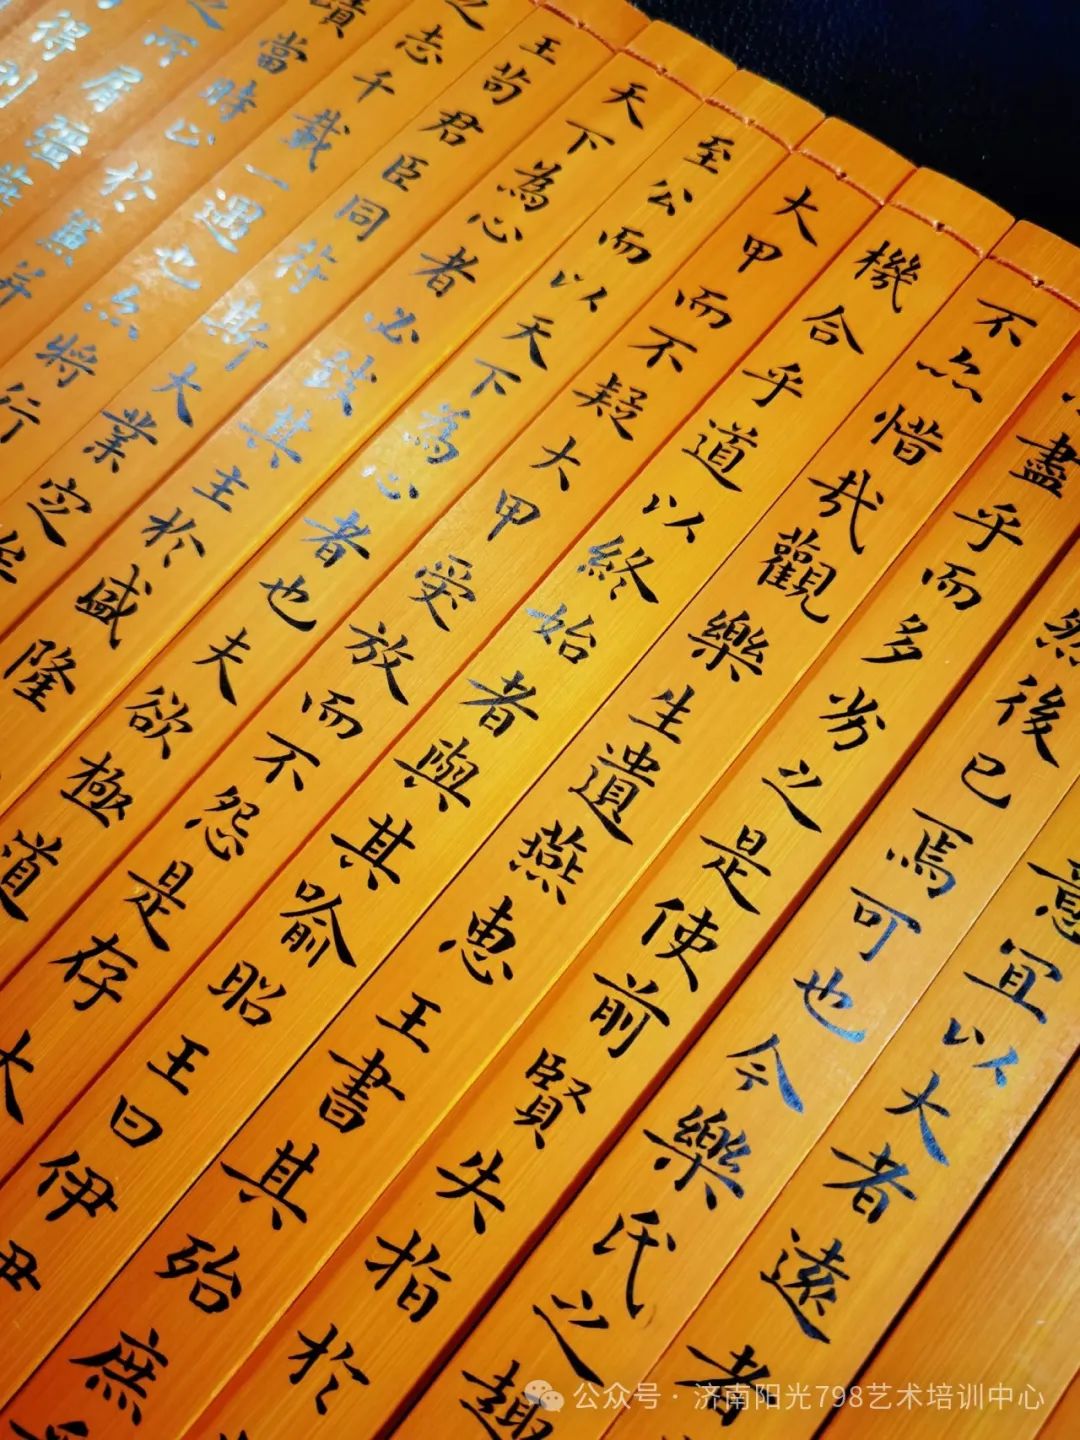 意宜以大者遠者
然後已焉可也今樂氏之趣
盡乎而多劣之是使前賢失指於
不亦惜哉觀樂生遺燕惠王書其殆庶乎
機合乎道以終始者與其喻昭王曰伊尹
大甲而不疑大甲受放而不怨是存大
至公而以天下為心者也夫欲極道
天下為心者必致其主於盛隆
王苟君臣同符斯大業定矣
之志千載一遇也亦將行
蹟當時止於兼并
之所屑彊燕
得則
公众号·济南阳光798艺术培训中心